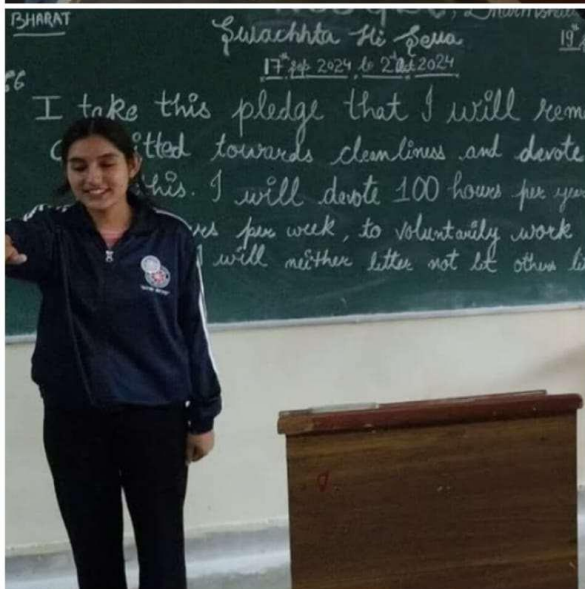 BHARAT
Swachhta Hi Seva
19th
17th Sep 2024 to 2nd Oct 2024
I take this pledge that I will rem
itted towards cleanliness and devote
this. I will devote 100 hours per ye
rs per week, to voluntarily work
I will neither litter not let others li